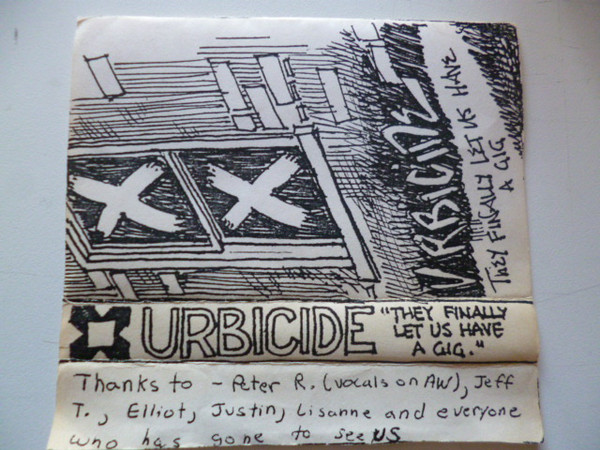 URBICIDE
THEY FINALLY LET US HAVE
A GIG
URBICIDE
"THEY FINALLY
LET US HAVE
A GIG."
Thanks to - Peter R. (vocals on AW), Jeff
T., Elliot, Justin, Lisanne and everyone
who has gone to see US